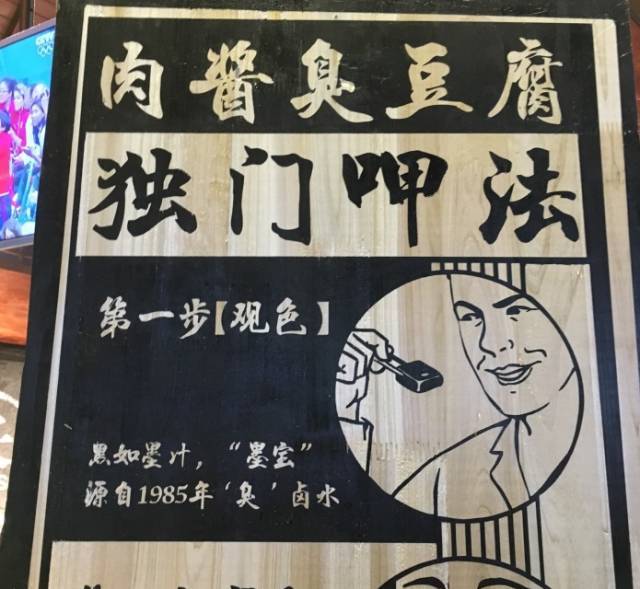 肉醬臭豆腐
独门呷法
第一步【观色】
黑如墨汁，“墨宝”
源自1985年‘臭’卤水
CCTV